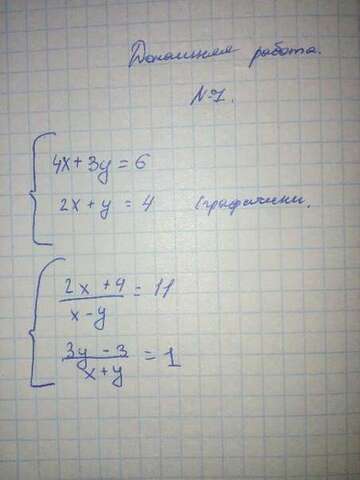 Домашняя работа.
№1.
4x + 3y = 6
2x + y = 4 (графически.
2x + 4 = 11
x - y
3y - 3 = 1
x + y